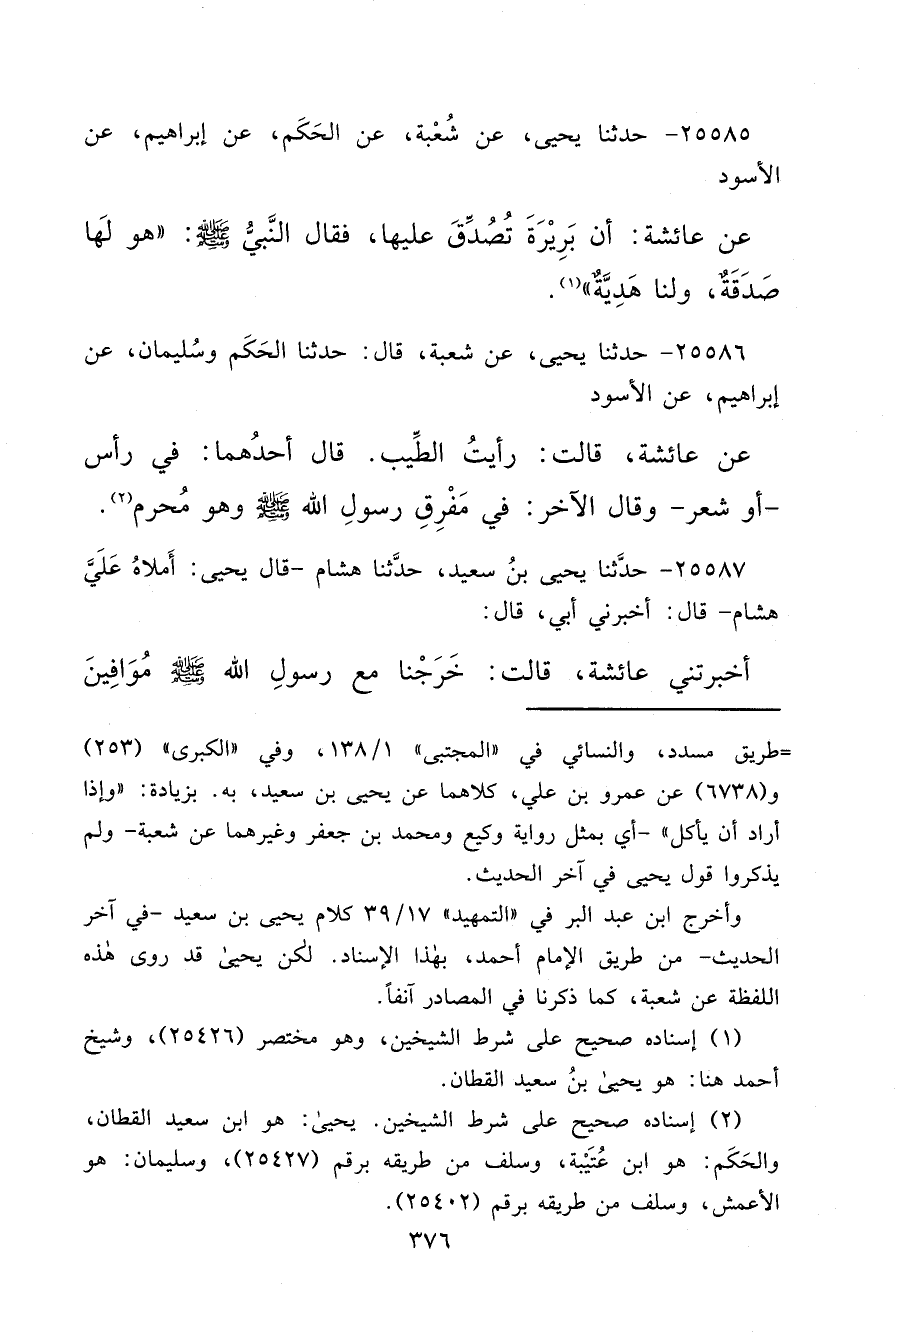 ٢٥٥٨٥- حدثنا يحيى، عن شُعْبة، عن الحَكَم، عن إبراهيم، عن
الأسود
عن عائشة: أن بَرِيْرَةَ تُصُدِّقَ عليها، فقال النَّبيُّ ﷺ: «هو لَها
صَدَقَةٌ، ولنا هَدِيَّةٌ»(١).
٢٥٥٨٦- حدثنا يحيى، عن شعبة، قال: حدثنا الحَكَم وسُليمان، عن
إبراهيم، عن الأسود
عن عائشة، قالت: رأيتُ الطِّيب. قال أحدُهما: في رأس
-أو شعر- وقال الآخر: في مَفْرِقِ رسولِ الله ﷺ وهو مُحرم(٢).
٢٥٥٨٧- حدَّثنا يحيى بنُ سعيد، حدَّثنا هشام -قال يحيى: أَملاهُ عَلَيَّ
هشام- قال: أخبرني أبي، قال:
أخبرتني عائشة، قالت: خَرَجْنا مع رسولِ الله ﷺ مُوَافِينَ
=طريق مسدد، والنسائي في «المجتبى» ١٣٨/١، وفي «الكبرى» (٢٥٣)
و(٦٧٣٨) عن عمرو بن علي، كلاهما عن يحيى بن سعيد، به. بزيادة: «وإذا
أراد أن يأكل» -أي بمثل رواية وكيع ومحمد بن جعفر وغيرهما عن شعبة- ولم
يذكروا قول يحيى في آخر الحديث.
وأخرج ابن عبد البر في «التمهيد» ٣٩/١٧ كلام يحيى بن سعيد -في آخر
الحديث- من طريق الإمام أحمد، بهٰذا الإسناد. لٰكن يحيىٰ قد روى هٰذه
اللفظة عن شعبة، كما ذكرنا في المصادر آنفاً.
(١) إسناده صحيح على شرط الشيخين، وهو مختصر (٢٥٤٢٦)، وشيخ
أحمد هنا: هو يحيىٰ بنُ سعيد القطان.
(٢) إسناده صحيح على شرط الشيخين. يحيىٰ: هو ابن سعيد القطان،
والحَكَم: هو ابن عُتَيْبة، وسلف من طريقه برقم (٢٥٤٢٧)، وسليمان: هو
الأعمش، وسلف من طريقه برقم (٢٥٤٠٢).
٣٧٦